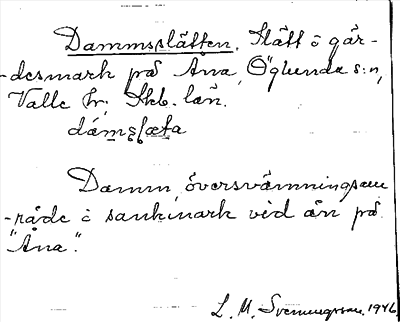 Dammsslätten. Slätt i går-
-desmark på Åna, Öglunda s:n,
Valle hr, Skb. län.
dámsslæta
Damm, översvämningsom
-råde i sankmark vid ån på
"Åna".
L. M. Svenungsson. 1946